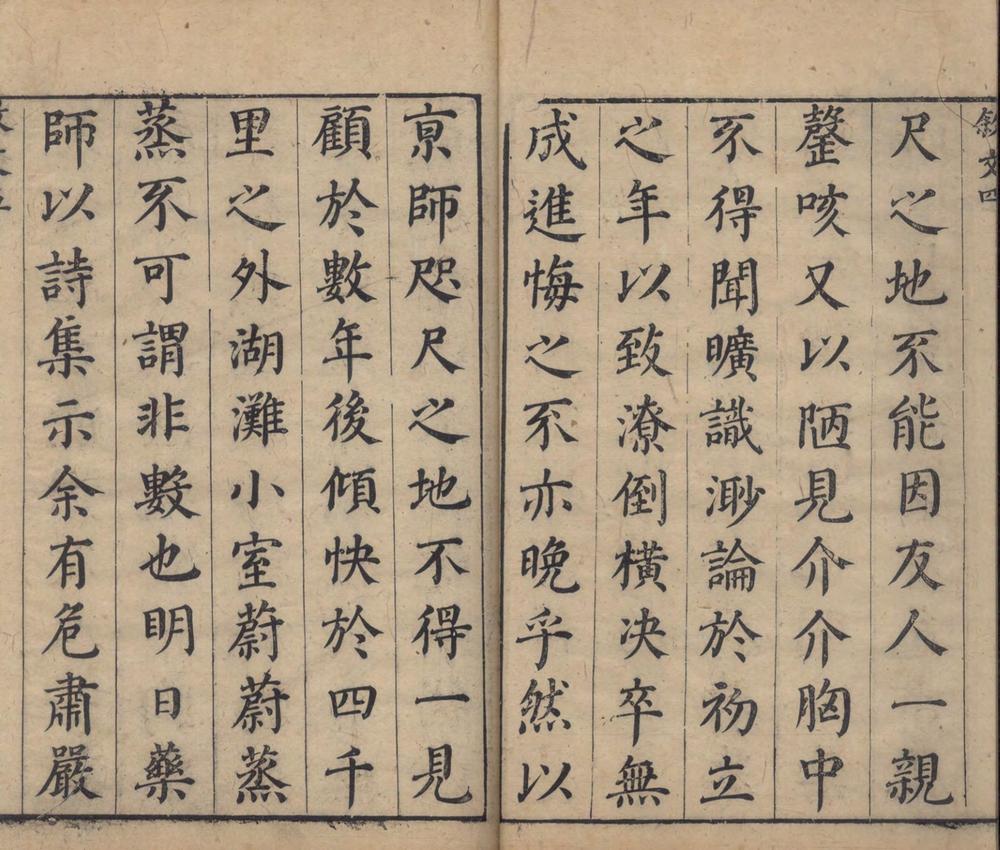 敘文四
尺之地不能因友人一親
謦咳又以陋見介介胸中
不得聞曠識渺論於初立
之年以致潦倒橫决卒無
成進悔之不亦晚乎然以
京師咫尺之地不得一見
顧於數年後傾快於四千
里之外湖灘小室蔚蔚蒸
蒸不可謂非數也明日藥
師以詩集示余有危肅嚴